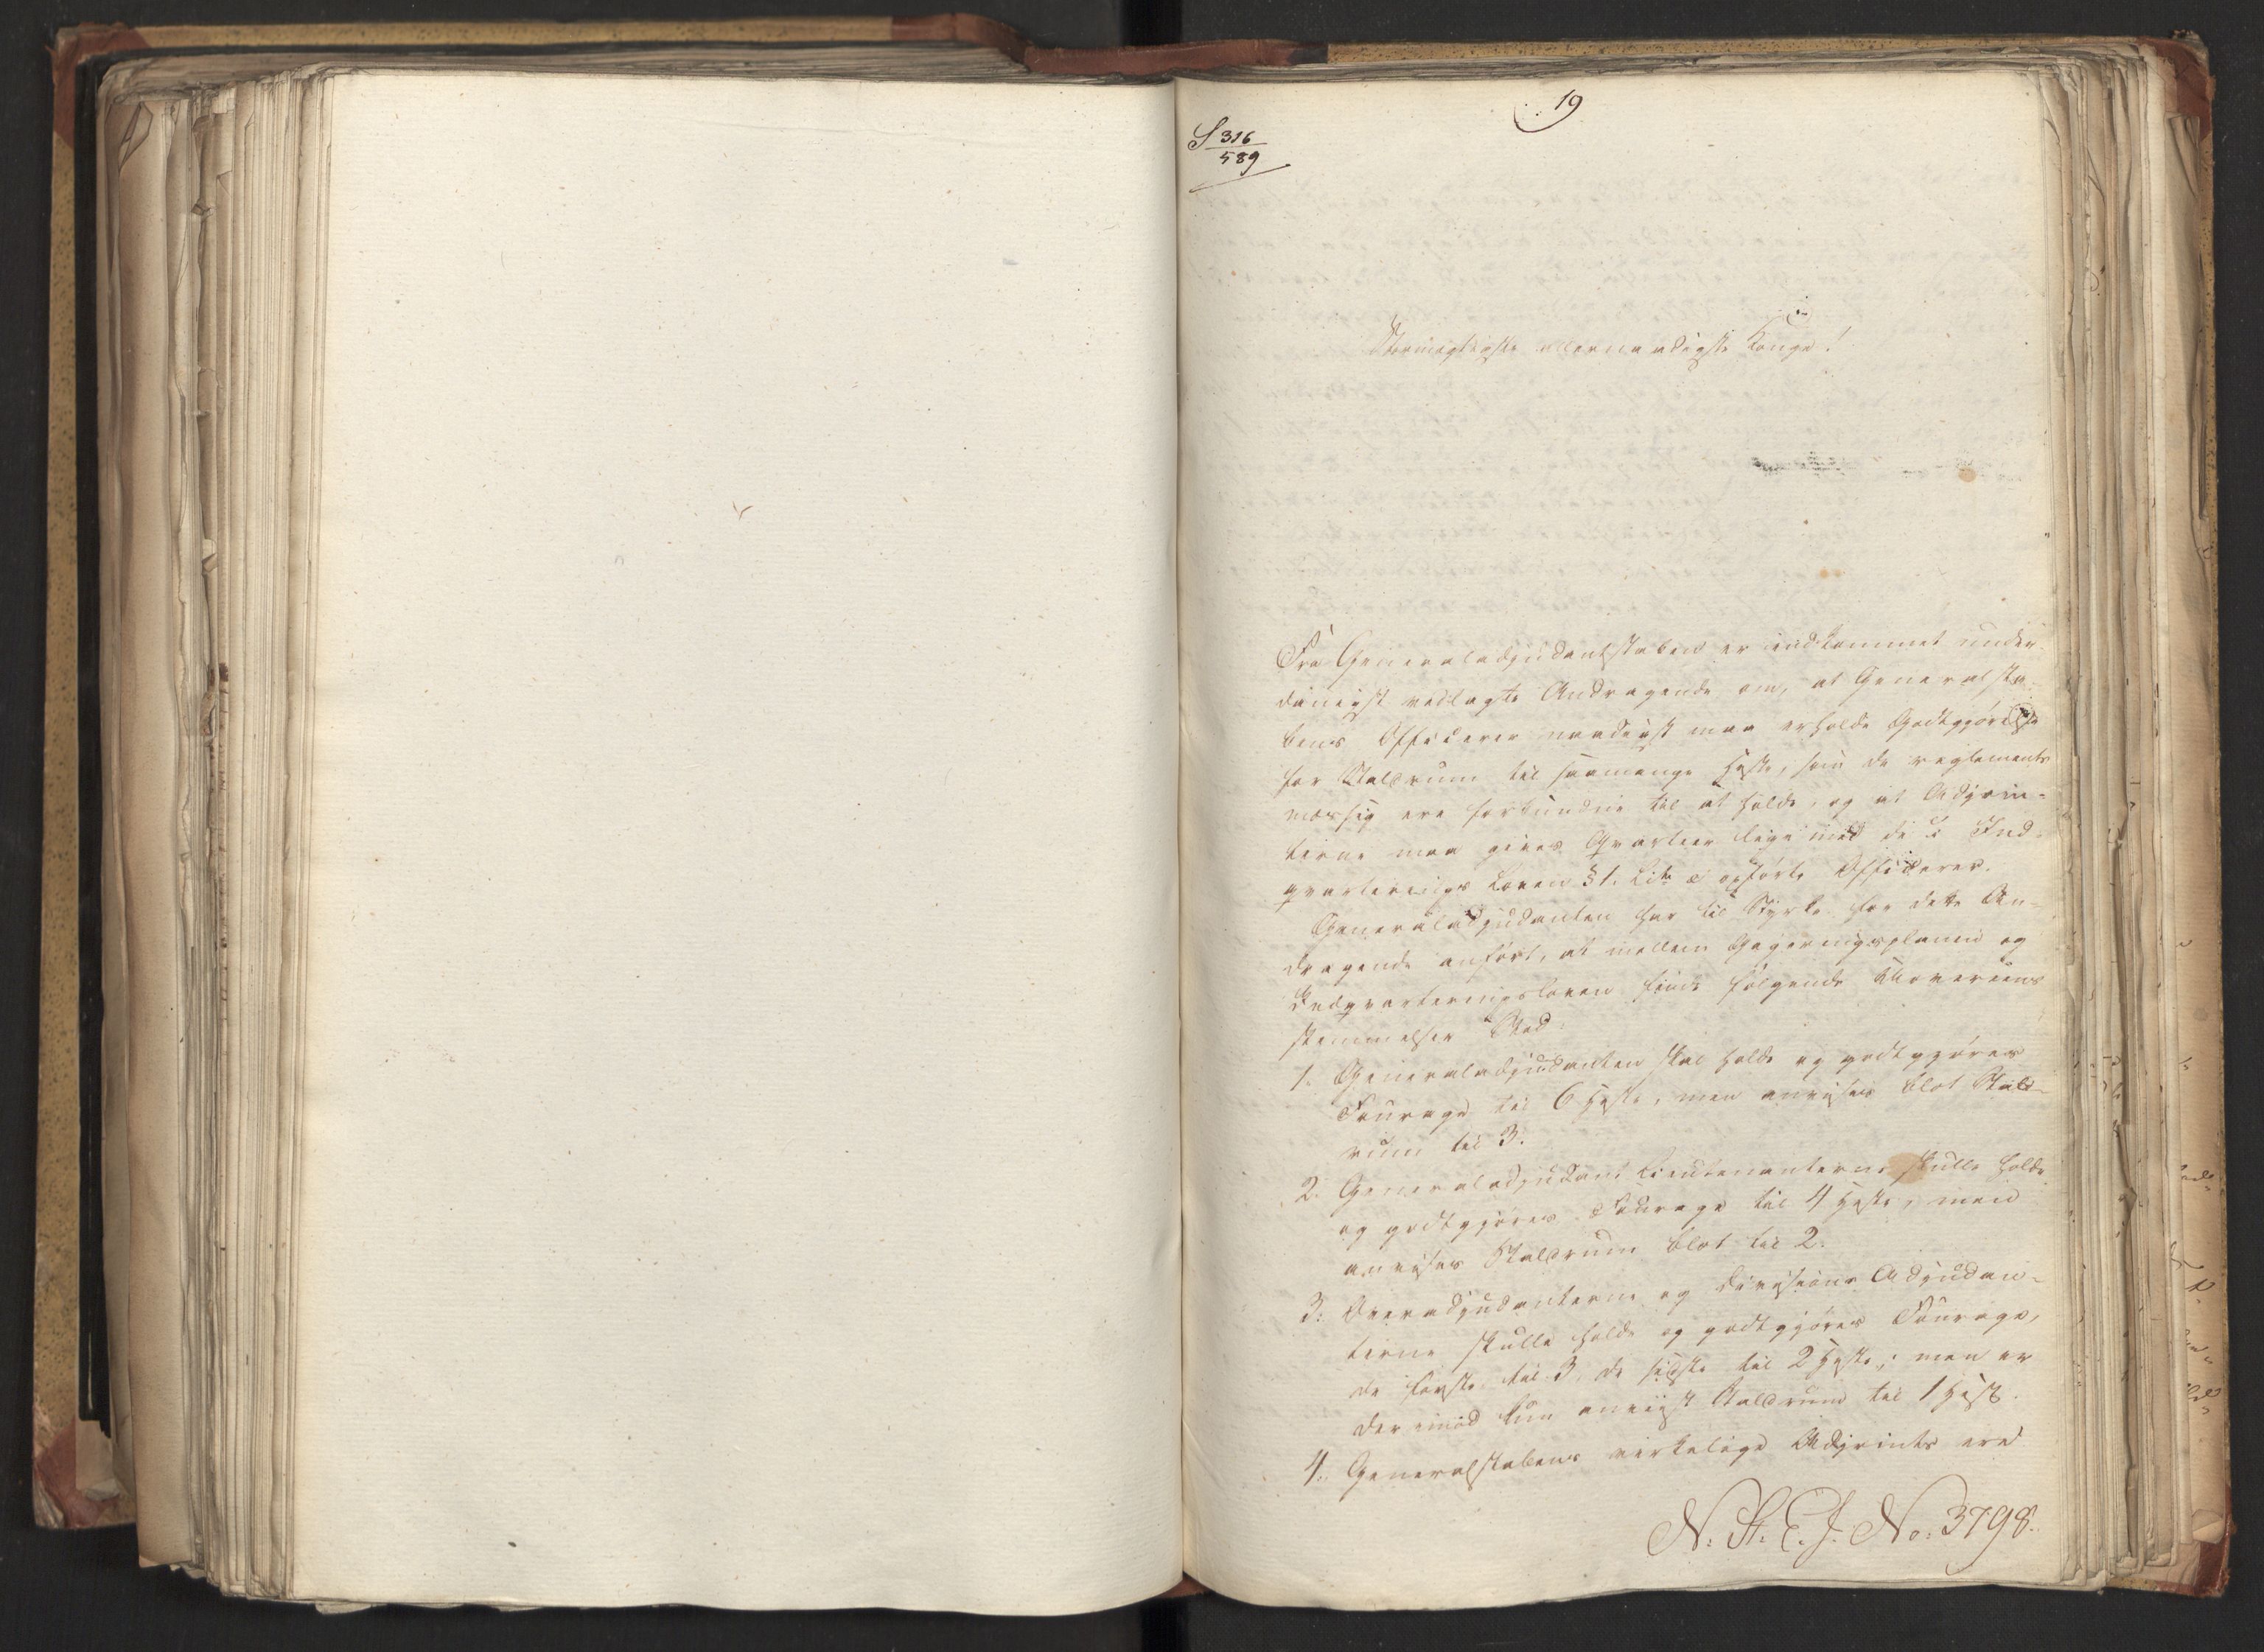 19
S 316
589
Stormægtigste allernaadigste Konge!
Fra Generaladjudantstaben er indkommet under-
danigst vedlagte Andragende om, at Generalsta-
bens Officerer naadigst maa erholde Godtgjørelse
for Staldrum til saamange Heste, som de reglements
mæssig ere forbundne til at holde, og at Adjoin-
terne maa gives Qvarteer lige med de i Ind-
qvarterings Loven § 1. Litr c opførte Officerer.
Generaladjudanten har til Styrke for dette An-
dragende anført, at mellem Gageringsplanen og
Indqvarteringsloven finde følgende Uovereens
stemmelser Sted:
1. Generaladjudanten skal holde og godtgjøres
Fourage til 6 Heste, men anvises blot Stald-
rum til 3.
2. Generaladjudant Lieutenanterne skulle holde
og godtgjøres Fourage til 4 Heste, men
anvises Staldrum blot til 2.
3. Overadjudanterne og Divisions Adjudan-
terne skulle holde og godtgjøres Fourage,
de første til 3, de sidste til 2 Heste; men er
derimod kun anviist Staldrum til 1 Hest.
4. Generalstabens virkelige Adjoints ere
N. St. E. J. No: 3798.